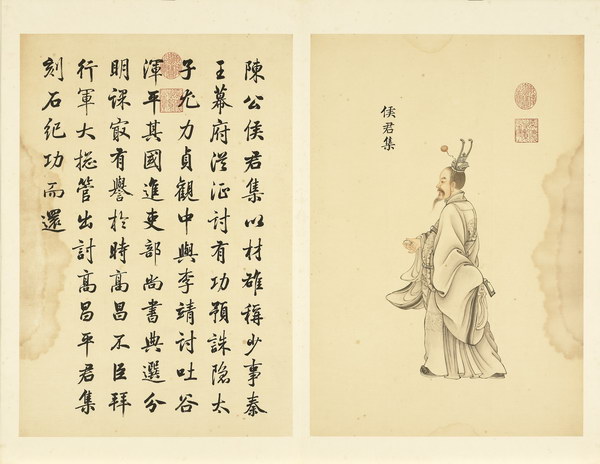 侯君集
陳公侯君集以材雄稱少事秦
王幕府從征討有功預誅隐太
子尤力貞觀中與李靖討吐谷
渾平其國進吏部尚書典選分
明課最有譽於時高昌不臣拜
行軍大總管出討高昌平君集
刻石紀功而還